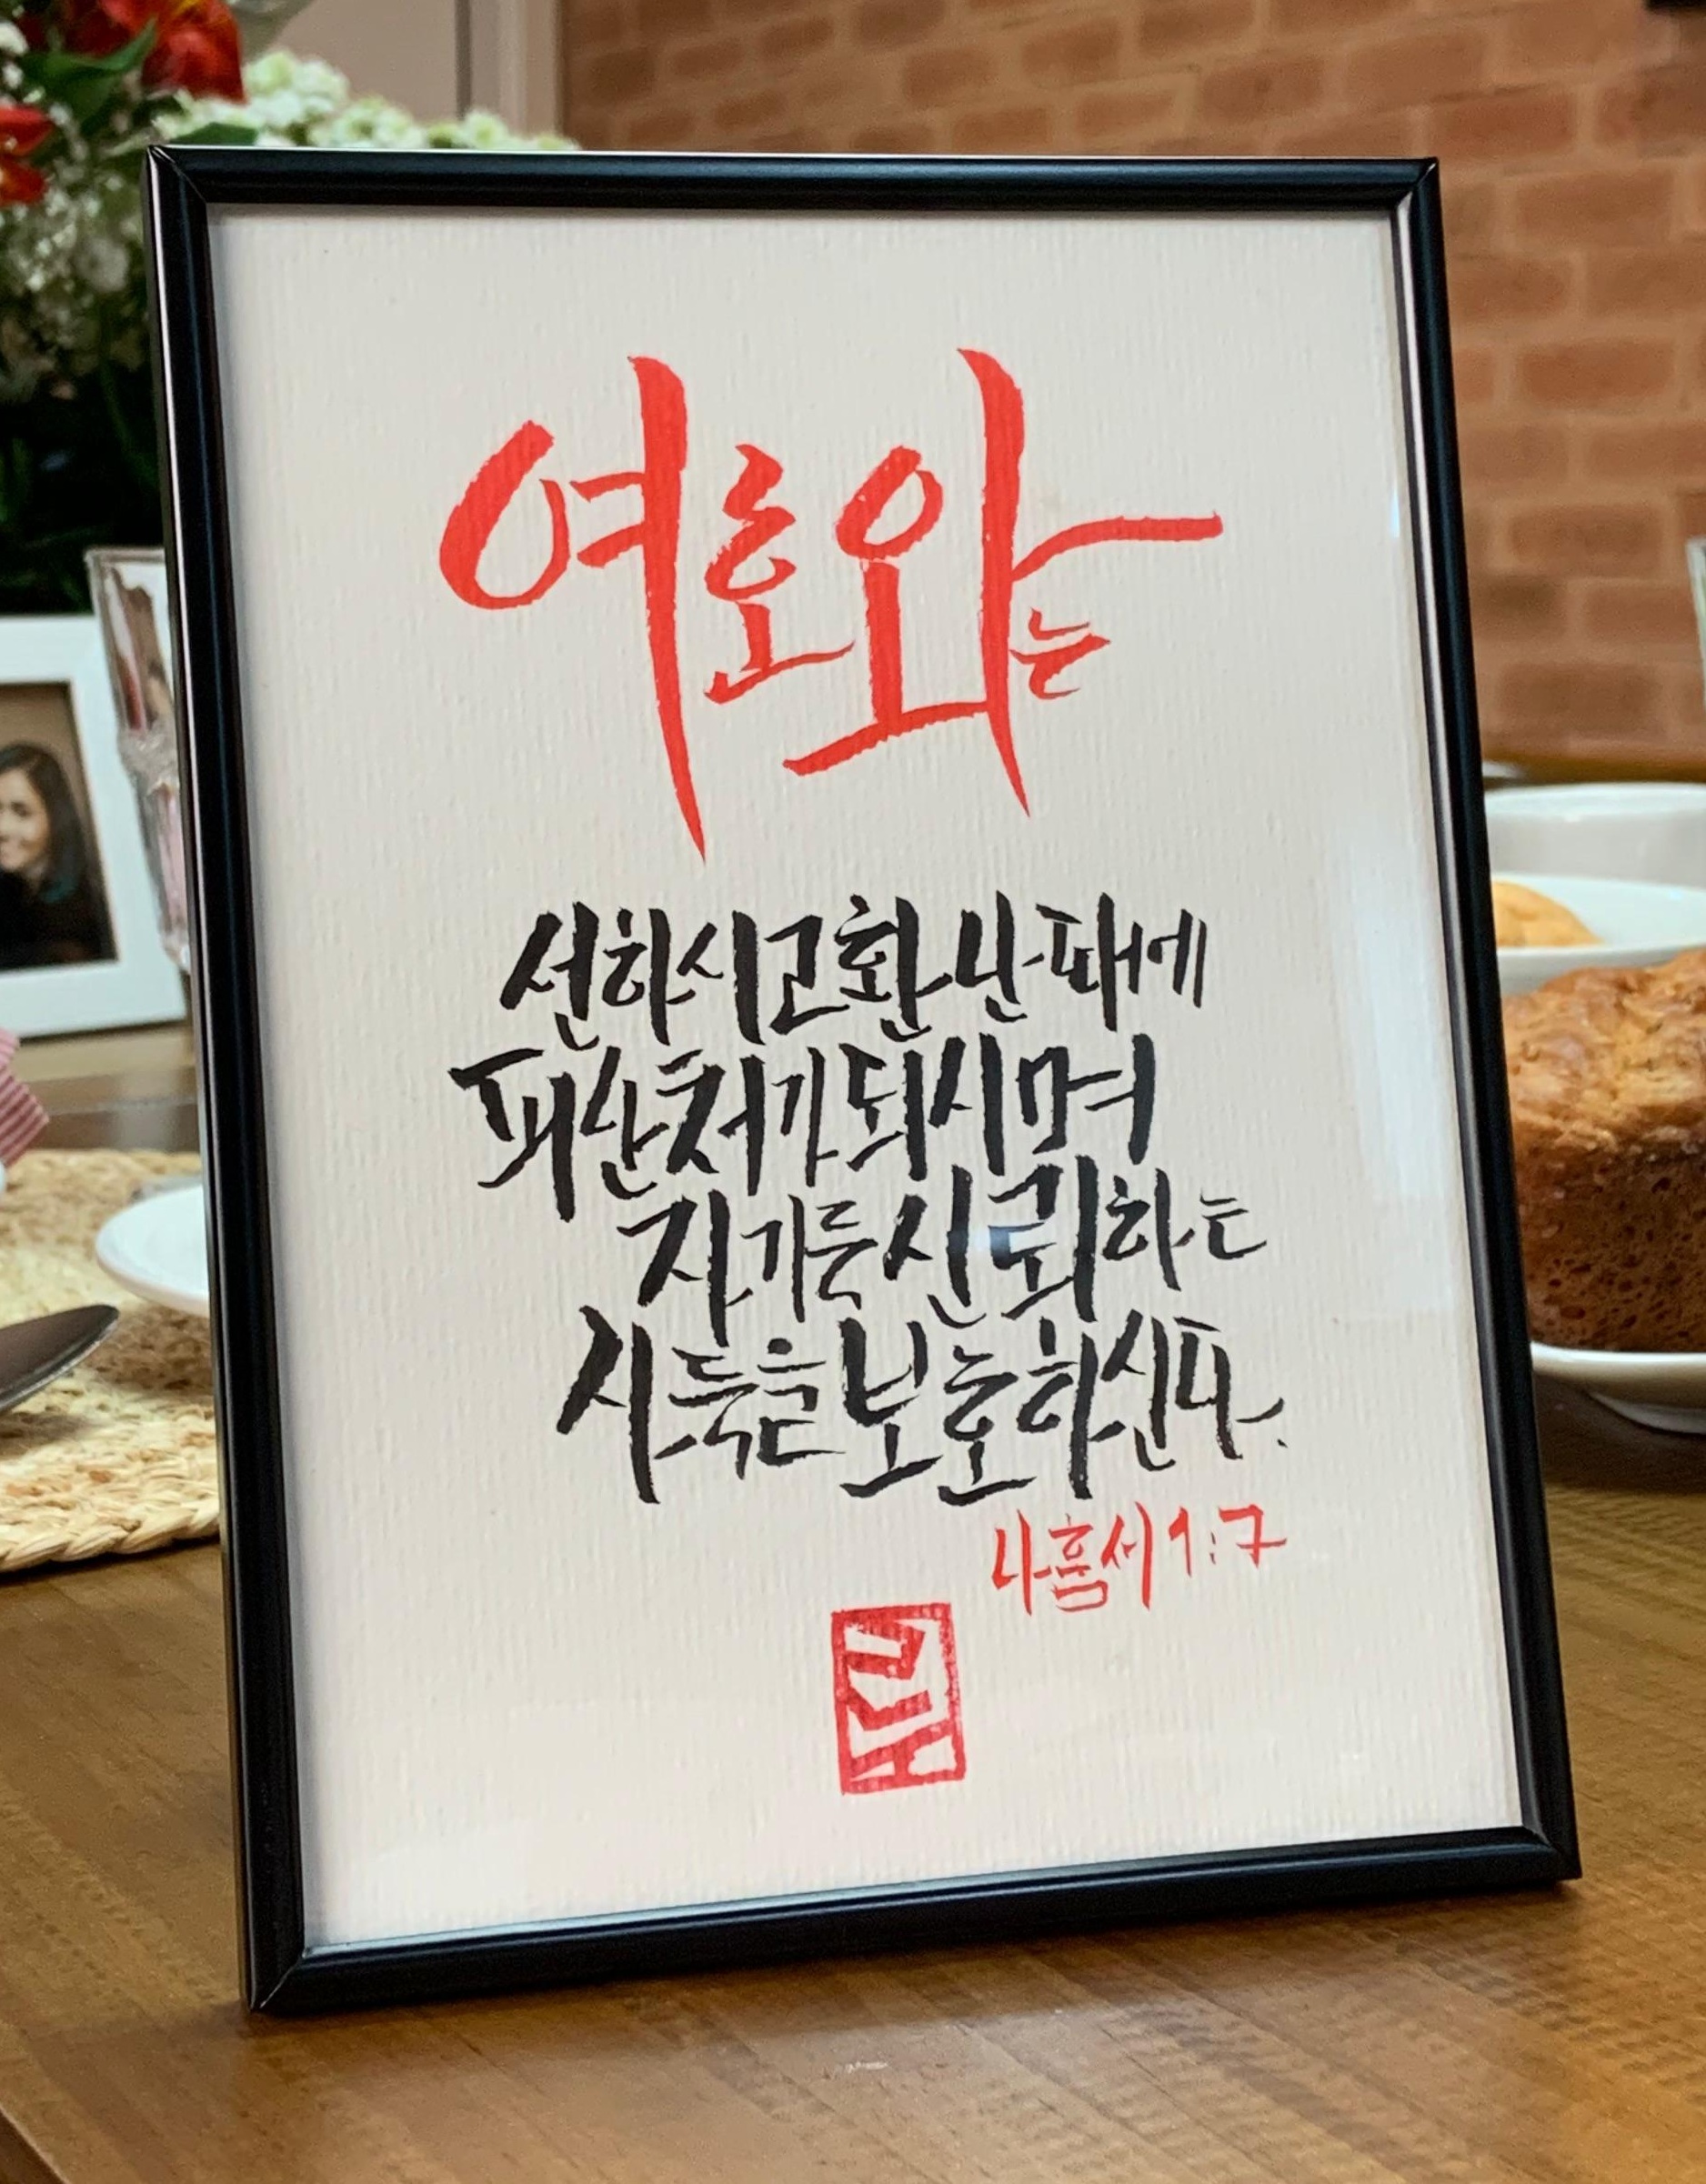 여호와는
선하시고 환난 때에
피난처가 되시며
자기를 신뢰하는
사들을 보호하신다.
나훔서 1:7